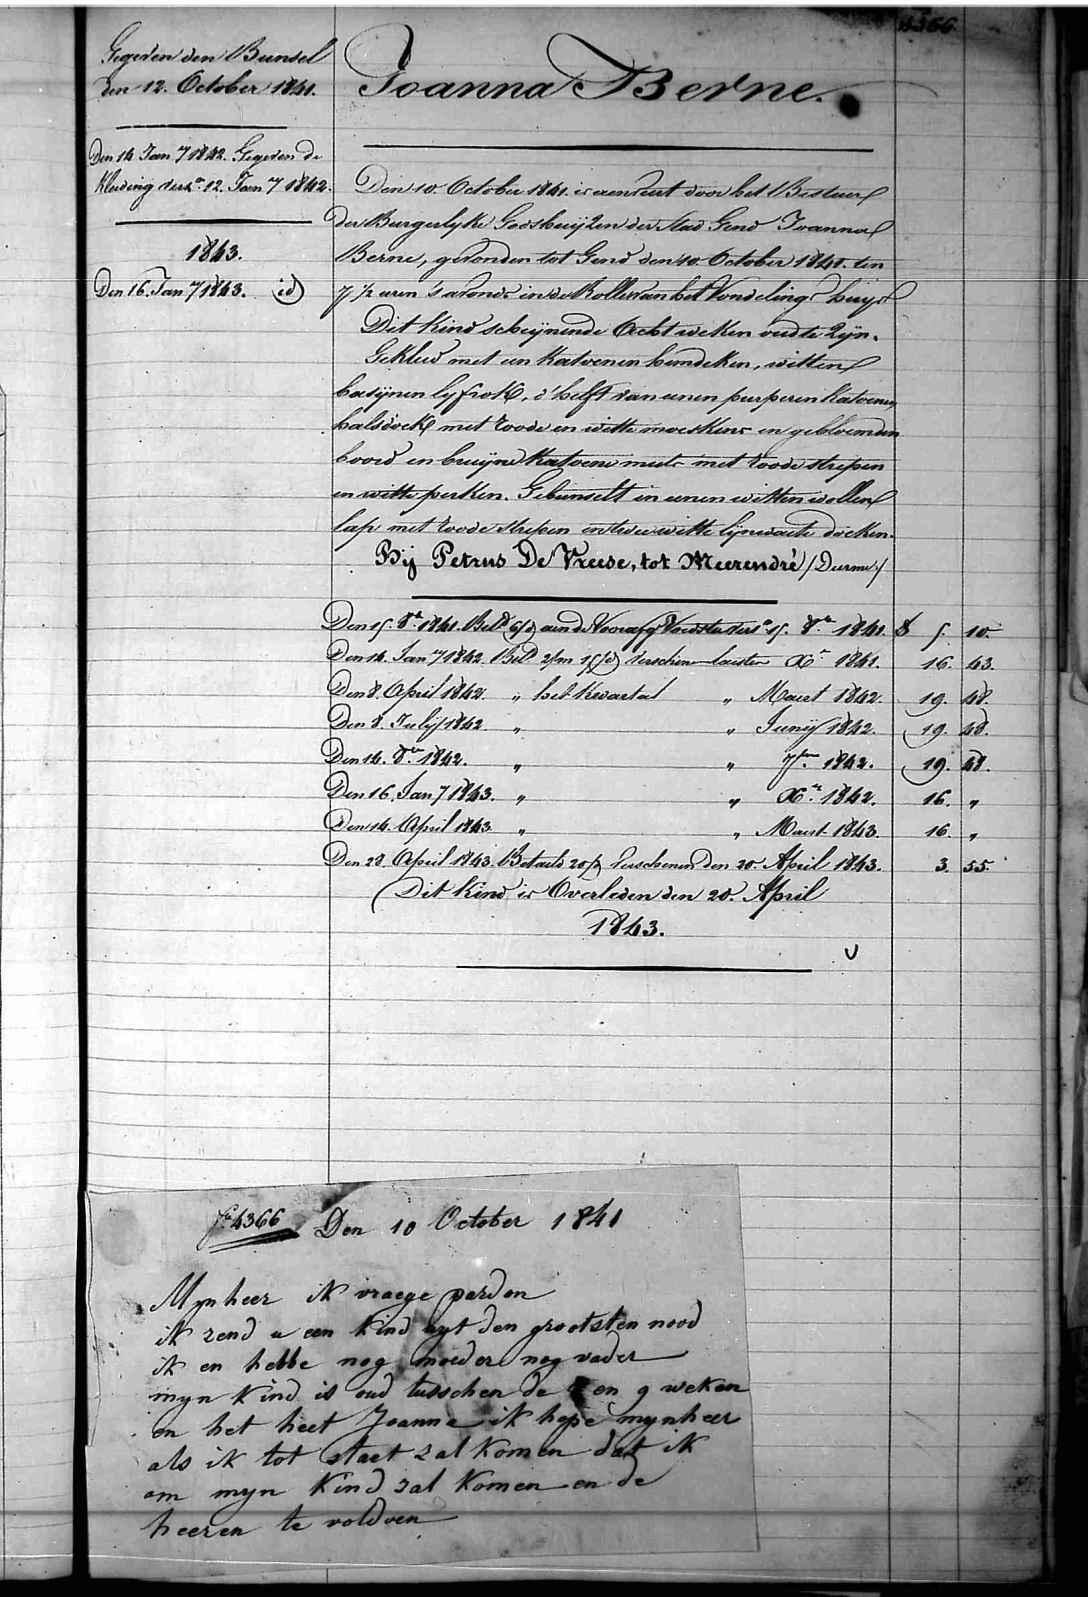 4366
Gegeven den Bunsel
den 12. October 1841.
Den 14 Jan 7 1842. Gegeven de
Kleeding versn. 12. Jan 7 1842.
1843.
Den 16. Jan 7 1843. id
Joanna Berne.
Den 10 October 1841. is aenveert door het Bestuer
der Burgerlyke Godshuijzen der stad Gend Joanna
Berne, gevonden tot Gend den 10. October 1841. ten
7 1/2 uren 's avonds in de Rolle van het Vondelings huijs
Dit kind scheijnende Acht weken oud te zijn.
Gekleed met een katoenen hemdeken, witten
basijnen lyfrok, d'helft van eenen purperen katoenen
halsdoek met roode en witte moeskens en gebloemden
boord en bruijne katoene muts met roode strepen
en witte perken. Gebunselt in eenen witten wollen
lap met roode strepen en twee witte lijnwaete doeken.
Bij Petrus De Vreese, tot Meerendré /Durme/
Den 15. 8bre 1841. Beld aen de Voorzorg Voedster 15. 8bre 1841. 5. 10.
Den 14. Jan 7 1842. Beld 2/m verschenen laesten Xr 1841. 16. 43.
Den 8. April 1842. " het kwartael " Maert 1842. 19. 48.
Den 8. Julij 1842 " " Junij 1842. 19. 48.
Den 14. 8bre 1842. " " 7bre 1842. 19. 48.
Den 16. Jan 7 1843. " " Xr 1842. 16. "
Den 14. April 1843. " " Maert 1843. 16. "
Den 28. April 1843. Betaeld 20/d verschenen den 20. April 1843. 3. 55.
Dit kind is Overleden den 20. April
1843.
fo 4366 Den 10 October 1841
Mynheer ik vraege pardon
ik zend u een kind uyt den grootsten nood
ik en hebbe nog moeder nog vader
myn kind is oud tusschen de en 9 weken
en het heet Joanna ik hope mynheer
als ik tot staet zal komen dat ik
om myn kind zal komen en de
heeren te voldoen